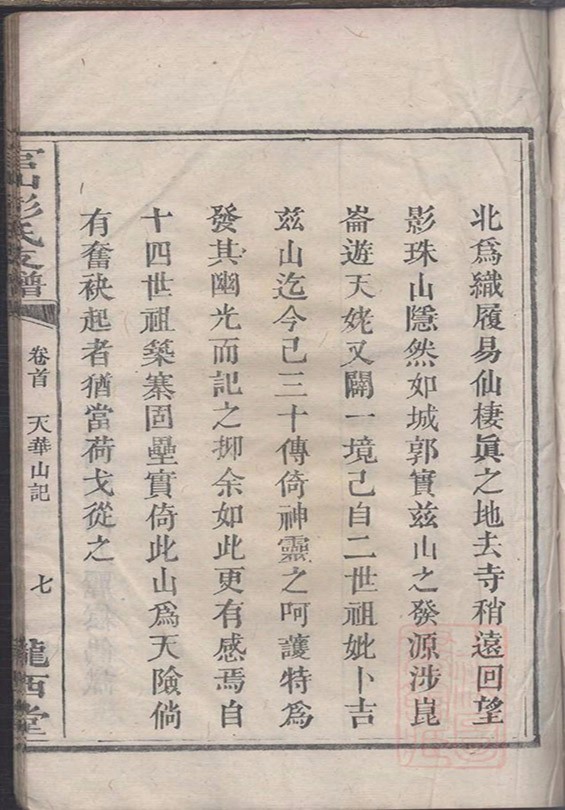 北爲織履易仙棲眞之地去寺稍遠回望
影珠山隱然如城郭實茲山之發源涉崑
崙遊天姥又闢一境己自二世祖妣卜吉
茲山迄今己三十傳倚神靈之呵護特爲
發其幽光而記之抑余如此更有感焉自
十四世祖築寨固壘實倚此山爲天險倘
有奮袂起者猶當荷戈從之
彭氏支譜
卷首 天華山記
七
隴西堂